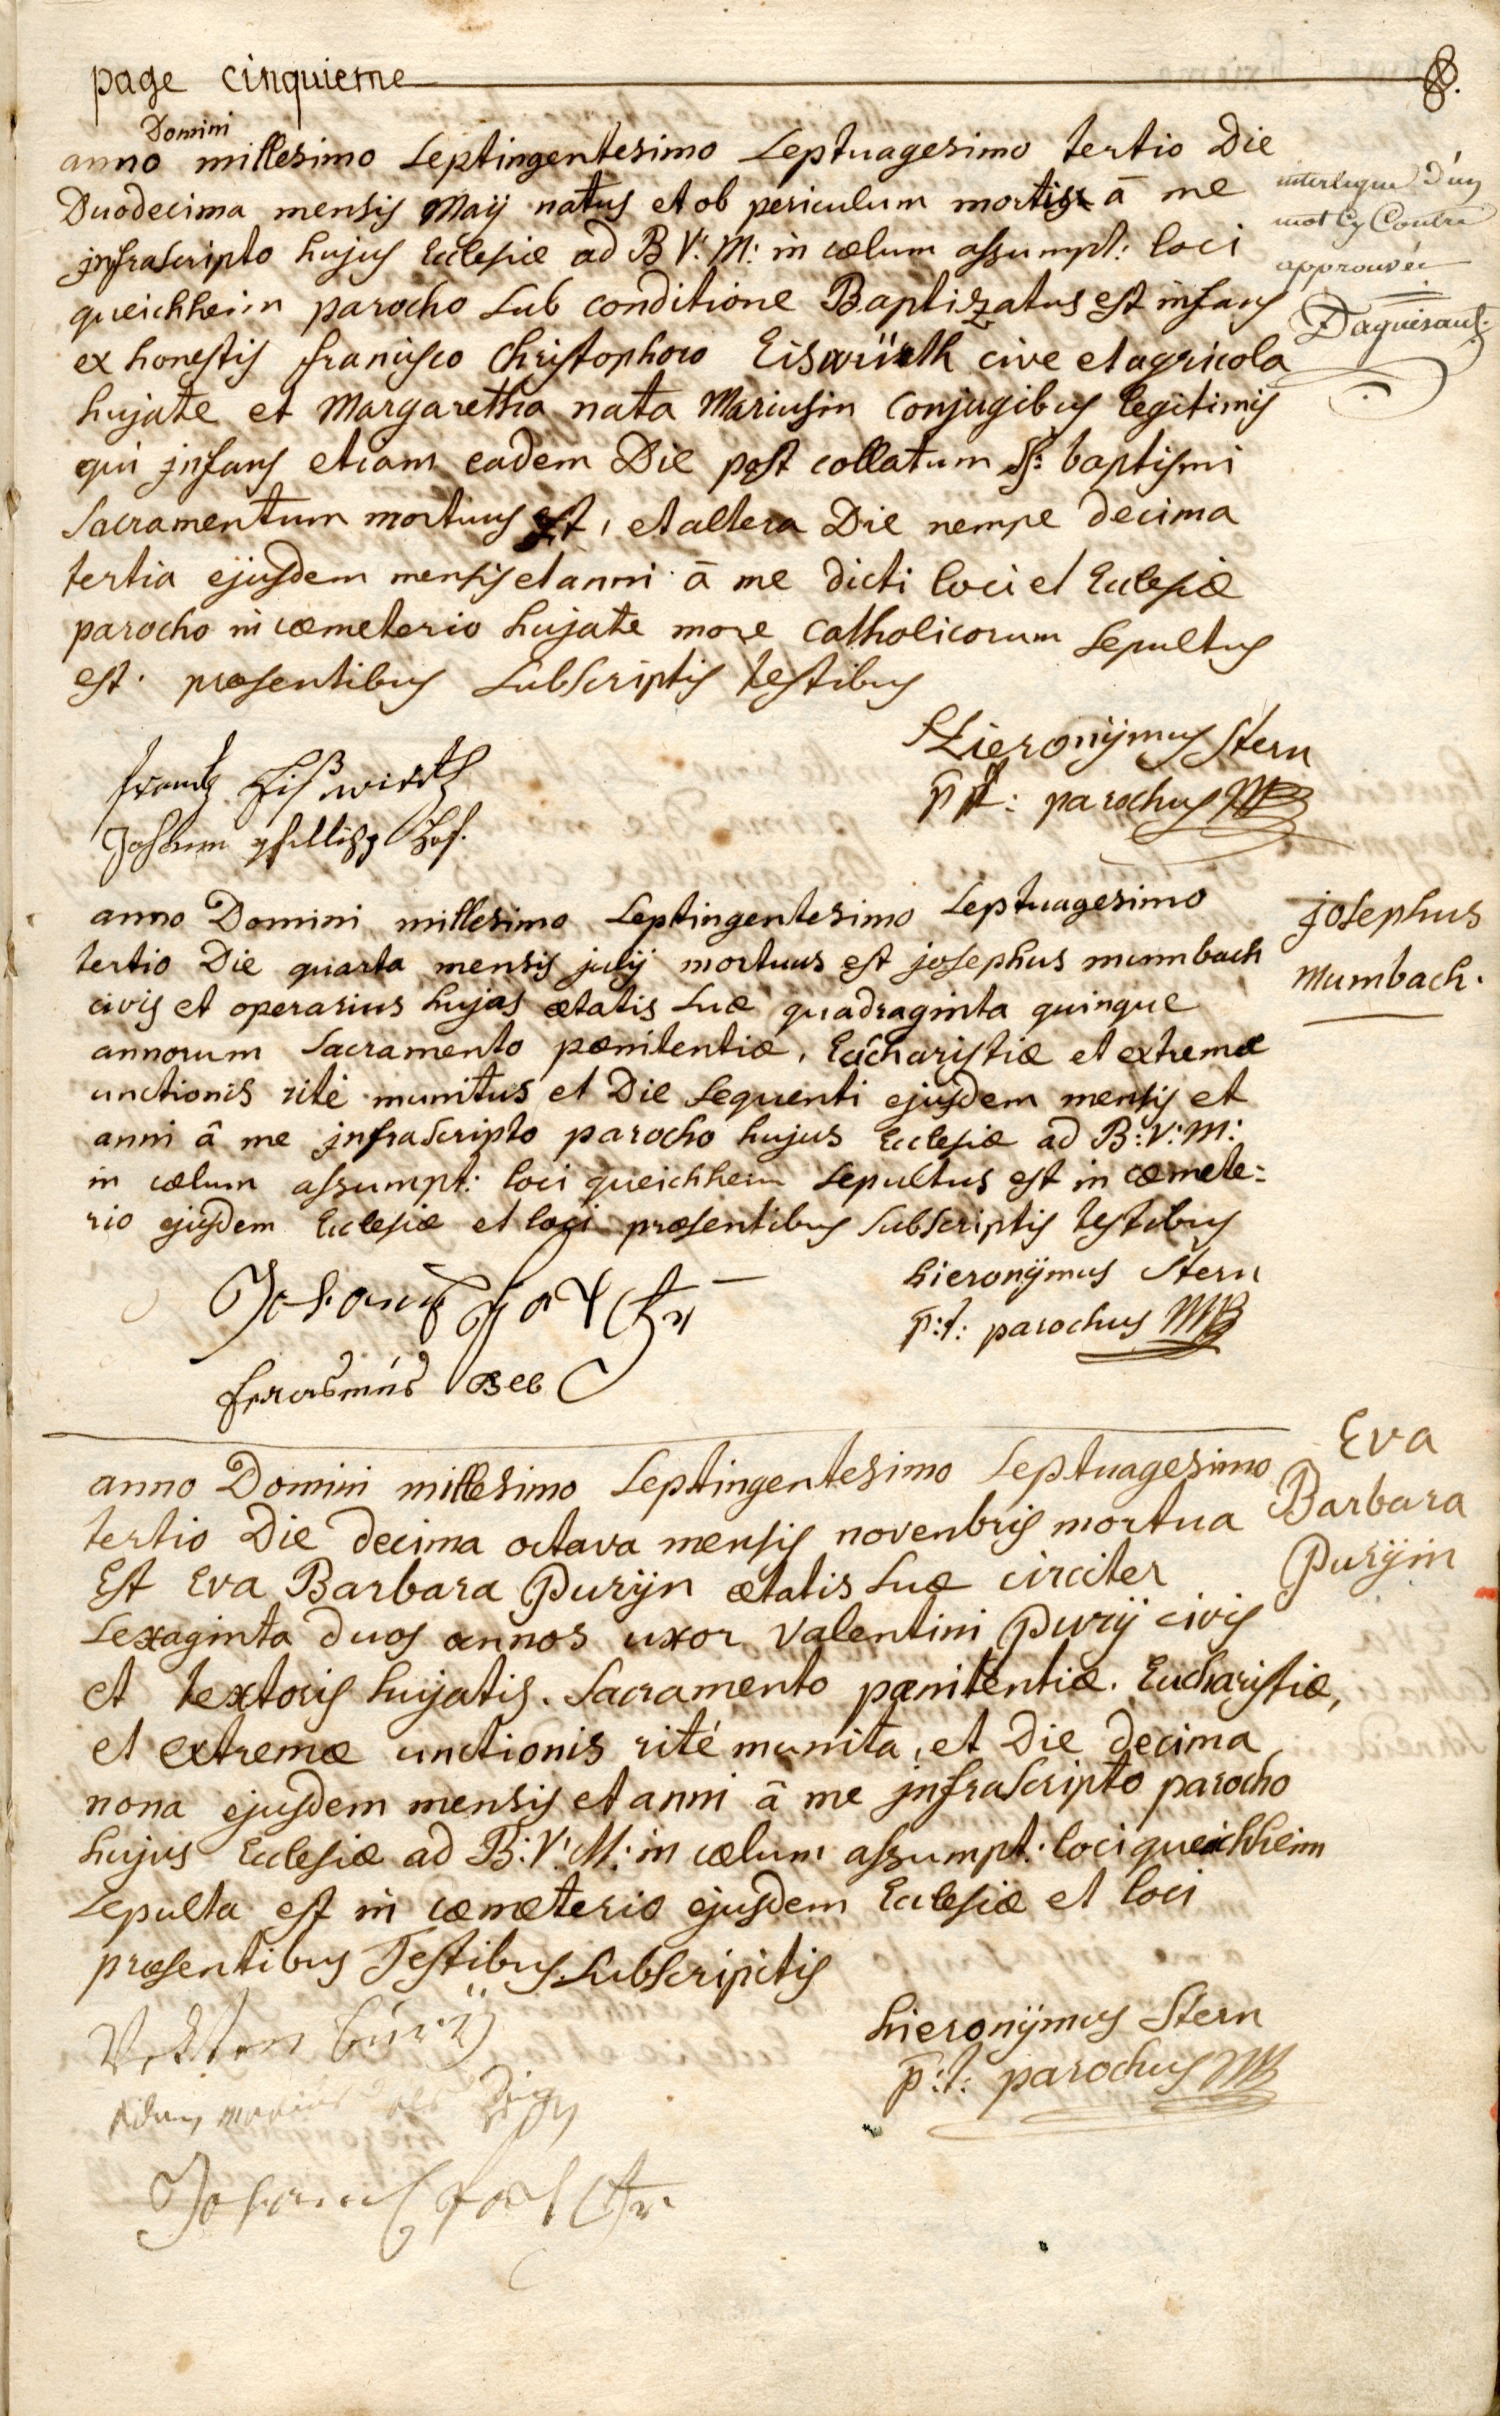 page cinquieme
Domini
anno millesimo Septingentesimo Septuagesimo tertio Die
Duodecima mensis Maij natus et ob periculum mortis à me
jnfrascripto hujus Ecclesiæ ad B V: M: in cælum assumpt: loci
queichheim parocho sub conditione Baptiszatus est infans
ex honestis francisco Christophoro Eiswürth cive et agricola
hujate et Margaretha nata Mariusin Conjugibus legitimis
qui jnfans etiam eadem Die post collatum S: baptismi
Sacramentum mortuus est, et altera Die nempe decima
tertia ejusdem mensis et anni à me dicti loci et Ecclesiæ
parocho in cœmeterio hujate more Catholicorum Sepultus
est. præsentibus Subscriptis testibus
interligne d'un
mot Cy Contre
approuvée
Daguesaut
Hieronijmus Stern
p t: parochus
frantz Eißwirth
Johann
anno Domini millesimo Septingentesimo Septuagesimo
tertio Die quarta mensis julij mortuus est josephus mumbach
civis et operarius hujas ætatis Suæ quadraginta quinque
annorum Sacramento pœnitentiæ, Eucharistiæ et extremæ
unctionis ritè munitus et Die Sequenti ejusdem mensis et
anni â me jnfrascripto parocho hujus Ecclesiæ ad B: V: M:
in cælum assumpt: loci queichheim Sepultus est in cœmete:
rio ejusdem Ecclesiæ et loci præsentibus Subscriptis testibus
josephus
Mumbach.
hieronijmus Stern
p:t: parochus
Johannes
Erasmus Beb
anno Domini millesimo Septingentesimo Septuagesimo
tertio Die decima octava mensis novenbris mortua
Est Eva Barbara Purijn ætatis Suæ circiter
Sexaginta duos annos uxor Valentini Purij civis
et textoris hujatis. Sacramento pœnitentiæ. Eucharistiæ,
et extremæ unctionis rité munita, et Die decima
nona ejusdem mensis et anni â me jnfrascripto parocho
hujus Ecclesiæ ad B: V: M: in cælum assumpt: loci queichheim
Sepulta est in cœmeterio ejusdem Ecclesiæ et loci
præsentibus Testibus Subscripitis
Eva
Barbara
Purijin
hieronijmus Stern
p:t: parochus